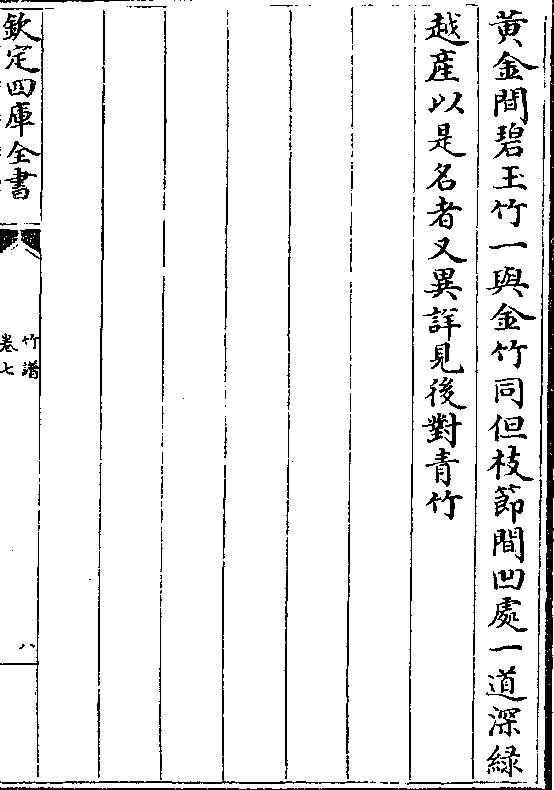 黄金間碧玉竹一與金竹同但枝節間凹處一道深緑
越産以是名者又異詳見後對青竹
欽定四庫全書
竹譜
卷七
八